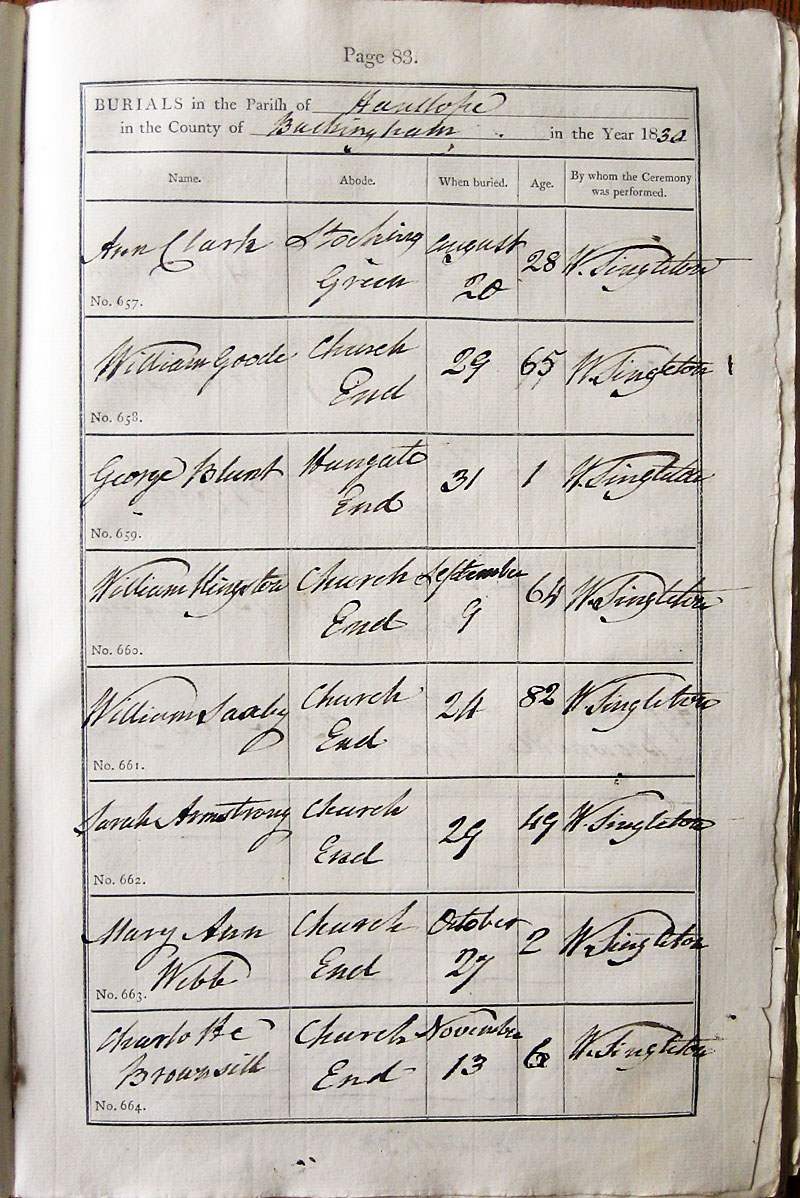 Page 83.
BURIALS in the Parish of Hanslope
in the County of Buckingham in the Year 1830
Name. Abode. When buried. Age. By whom the Ceremony
was performed.
Ann Clark Stocking august 28 W. Singleton
Green 20
No. 657.
William Goode Church 29 65 W. Singleton
End
No. 658.
George Blunt Hungate 31 1 W. Singleton
End
No. 659.
William Kingston Church September 64 W. Singleton
End 9
No. 660.
William Saxby Church 24 82 W. Singleton
End
No. 661.
Sarah Armstrong Church 29 49 W. Singleton
End
No. 662.
Mary Ann Church October 2 W. Singleton
Webb End 27
No. 663.
Charlotte Church November 6 W. Singleton
Brownsill End 13
No. 664.